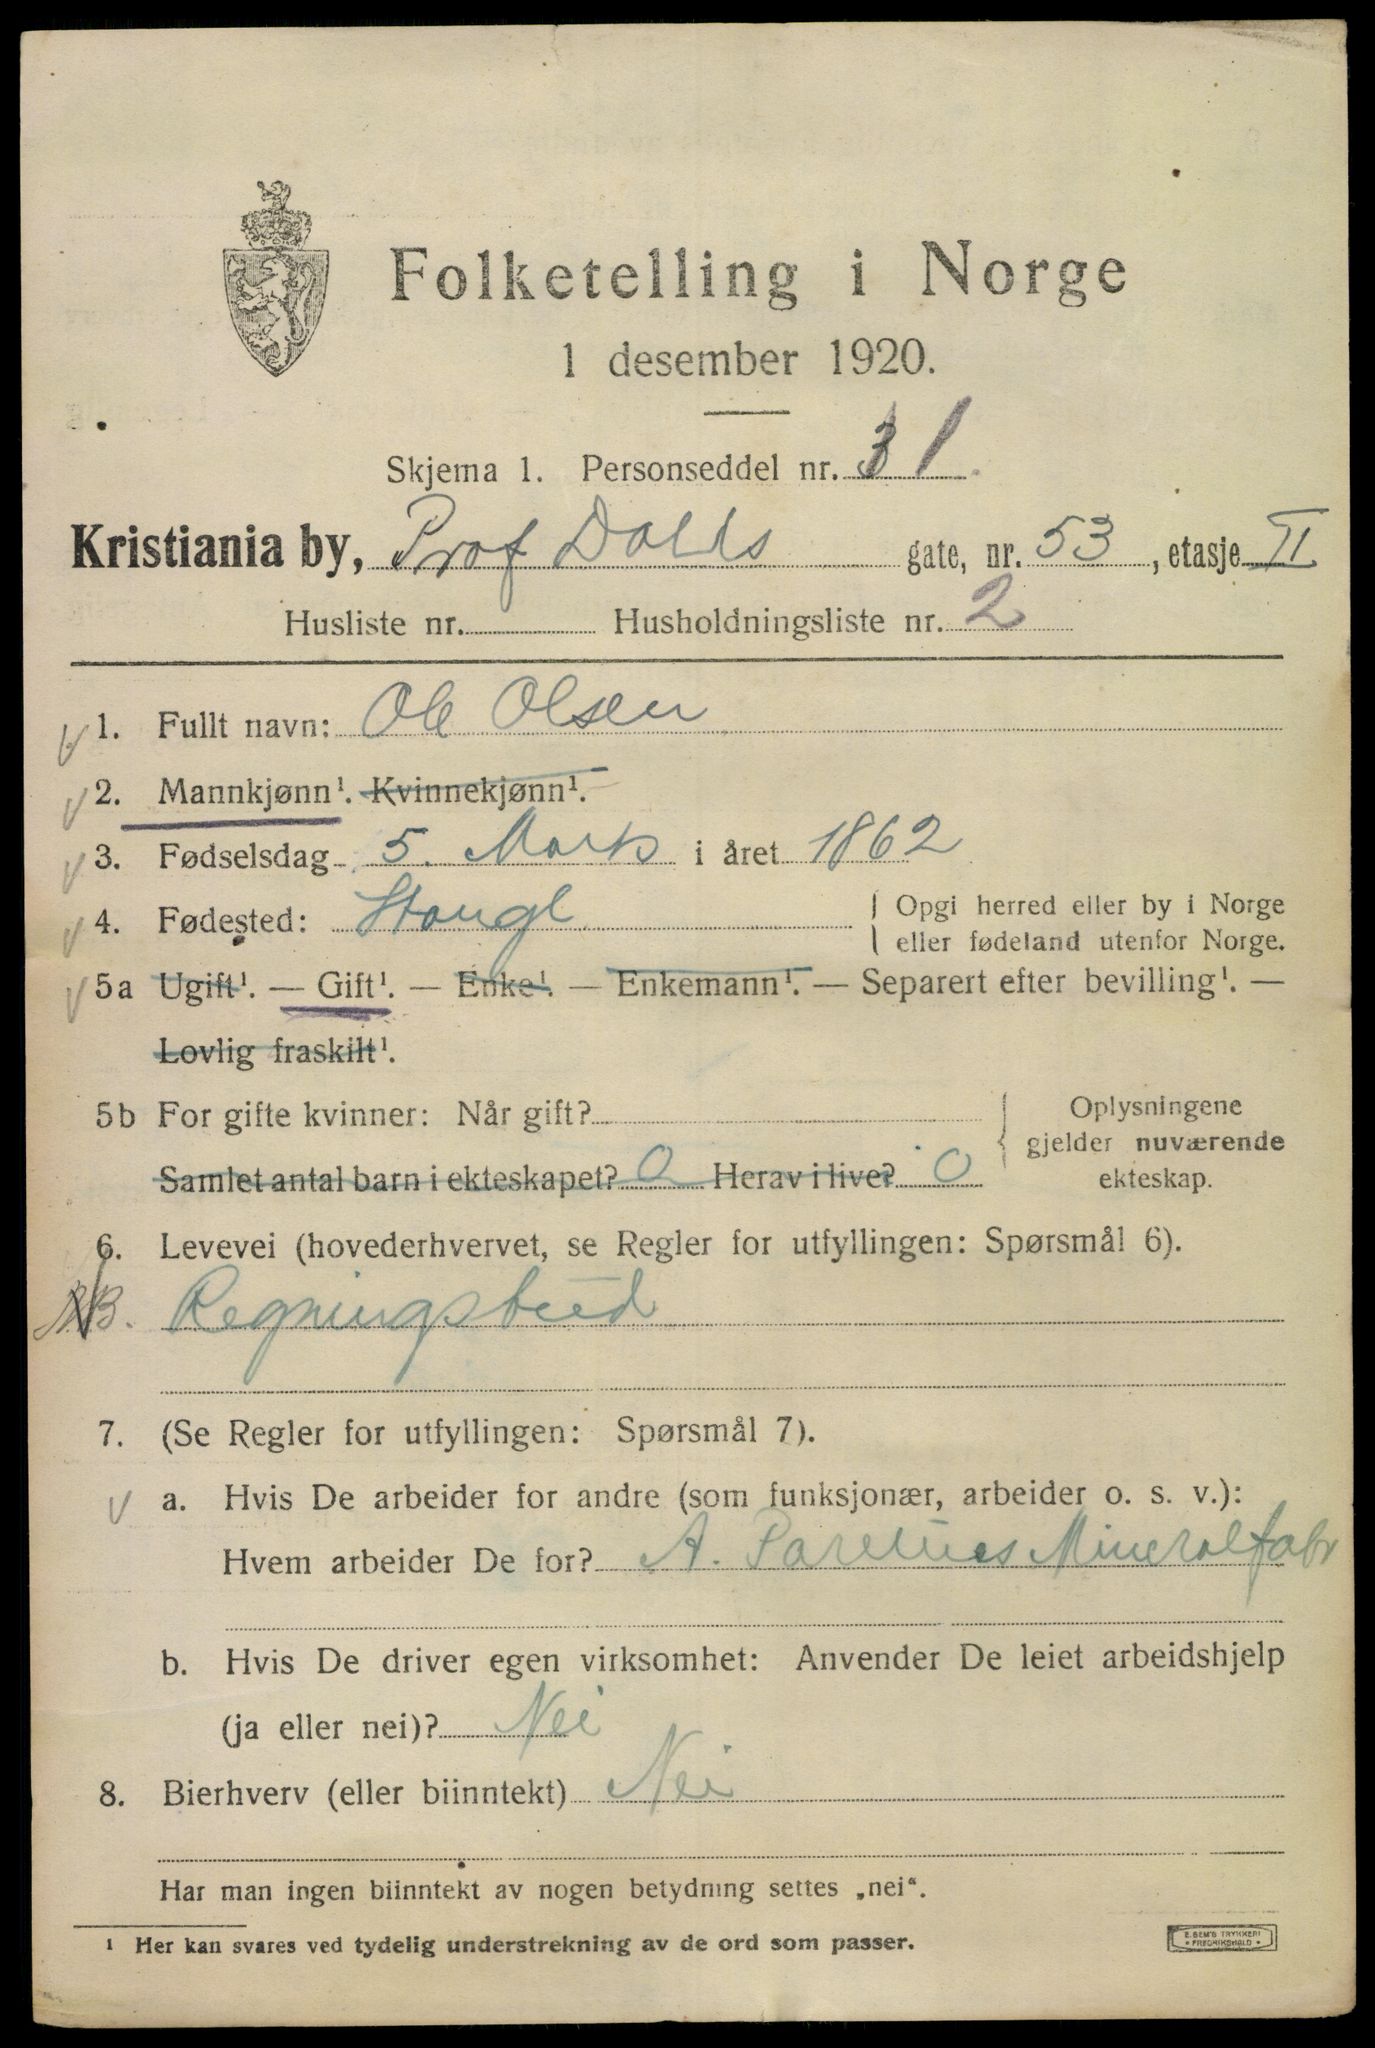 Folketelling i Norge
1 desember 1920.
Skjema 1. Personseddel nr. 1
Kristiania by, Prof Dahls gate, nr. 53, etasje II
Husliste nr. Husholdningsliste nr. 2
1. Fullt navn: Ole Olsen
2. Mannkjønn¹. Kvinnekjønn¹.
3. Fødselsdag 5. Marts i året 1862
4. Fødested: Stange
Opgi herred eller by i Norge
eller fødeland utenfor Norge.
5a Ugift¹. — Gift¹. — Enke¹. — Enkemann¹. — Separert efter bevilling¹. —
Lovlig fraskilt¹.
5b For gifte kvinner: Når gift?
Samlet antal barn i ekteskapet? 0 Herav i live? 0
Oplysningene
gjelder nuværende
ekteskap.
6. Levevei (hovederhvervet, se Regler for utfyllingen: Spørsmål 6).
Regningsbud
7. (Se Regler for utfyllingen: Spørsmål 7).
a. Hvis De arbeider for andre (som funksjonær, arbeider o. s. v.):
Hvem arbeider De for? A. Mineralfabr
b. Hvis De driver egen virksomhet: Anvender De leiet arbeidshjelp
(ja eller nei)? Nei
8. Bierhverv (eller biinntekt) Nei
Har man ingen biinntekt av nogen betydning settes „nei“.
¹ Her kan svares ved tydelig understrekning av de ord som passer.
E. SEM'S TRYKKERI
• FREDRIKSHALD •